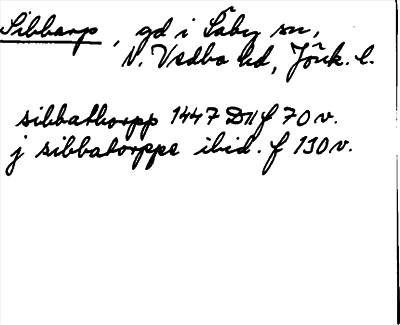 Sibbarp, gd i Säby sn,
N. Vedbo hd, Jönk. l.
sibbathorpp 1447 D11 f 70 v.
j sibbatorppe ibid. f 130 v.